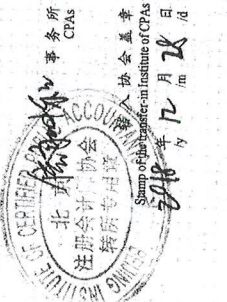 事务所
CPAs
转入协会盖章
Stamp of the transfer-in Institute of CPAs
2018 年 12 月 28 日
/y /m /d
INSTITUTE OF CERTIFIED
ACCOUN
北
注册会计 协会
转所专用章